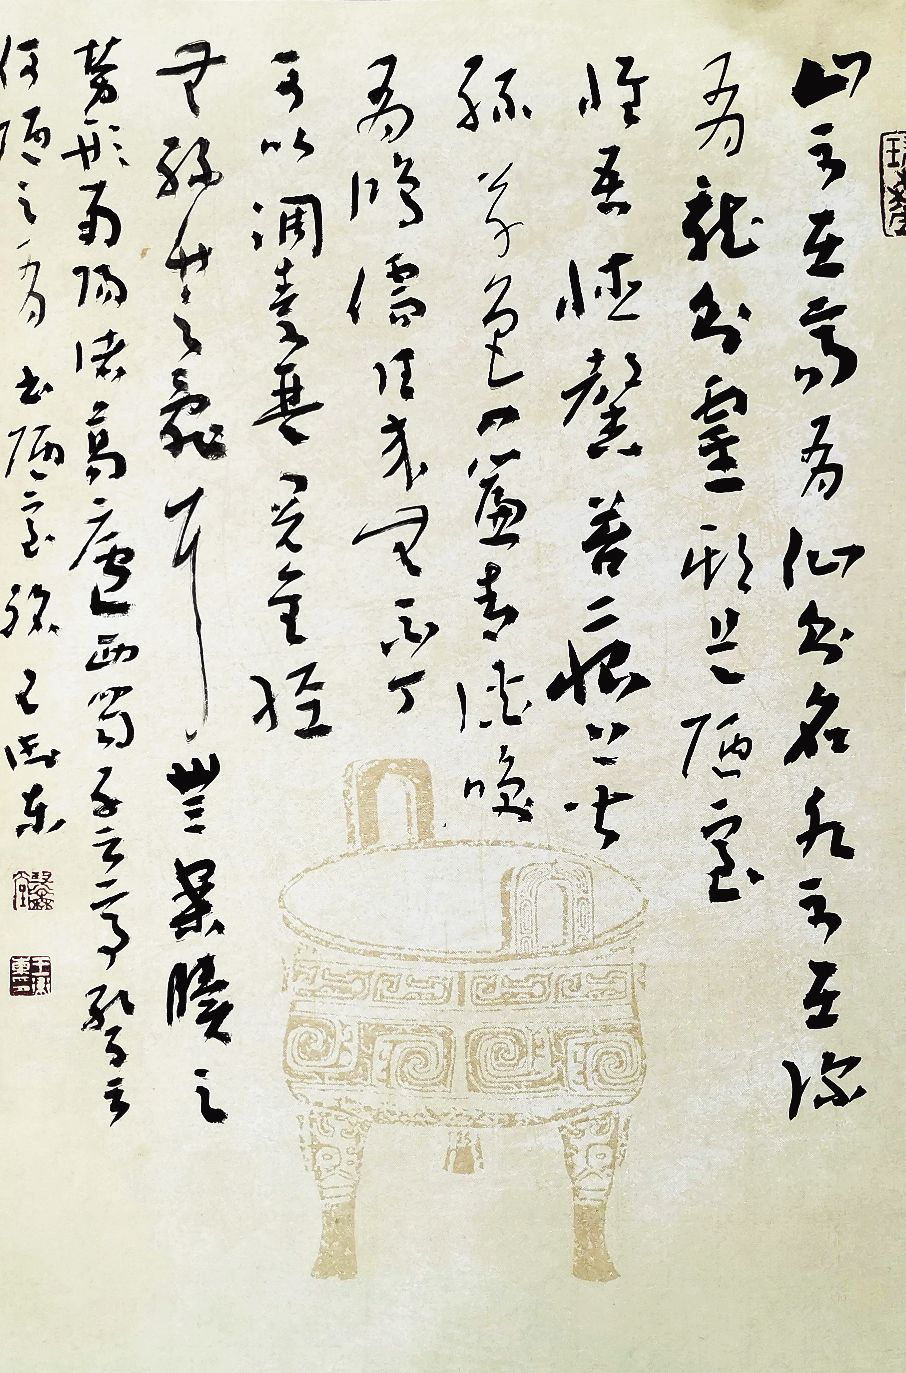 山不在高有仙則名水不在深
有龍則靈斯是陋室
惟吾德馨苔痕上階
綠草色入簾青談笑
有鴻儒往來無白丁
可以調素琴閱金經
無絲竹之亂耳無案牘之
勞形南陽諸葛廬西蜀子云亭孔子云
何陋之有書陋室銘王東